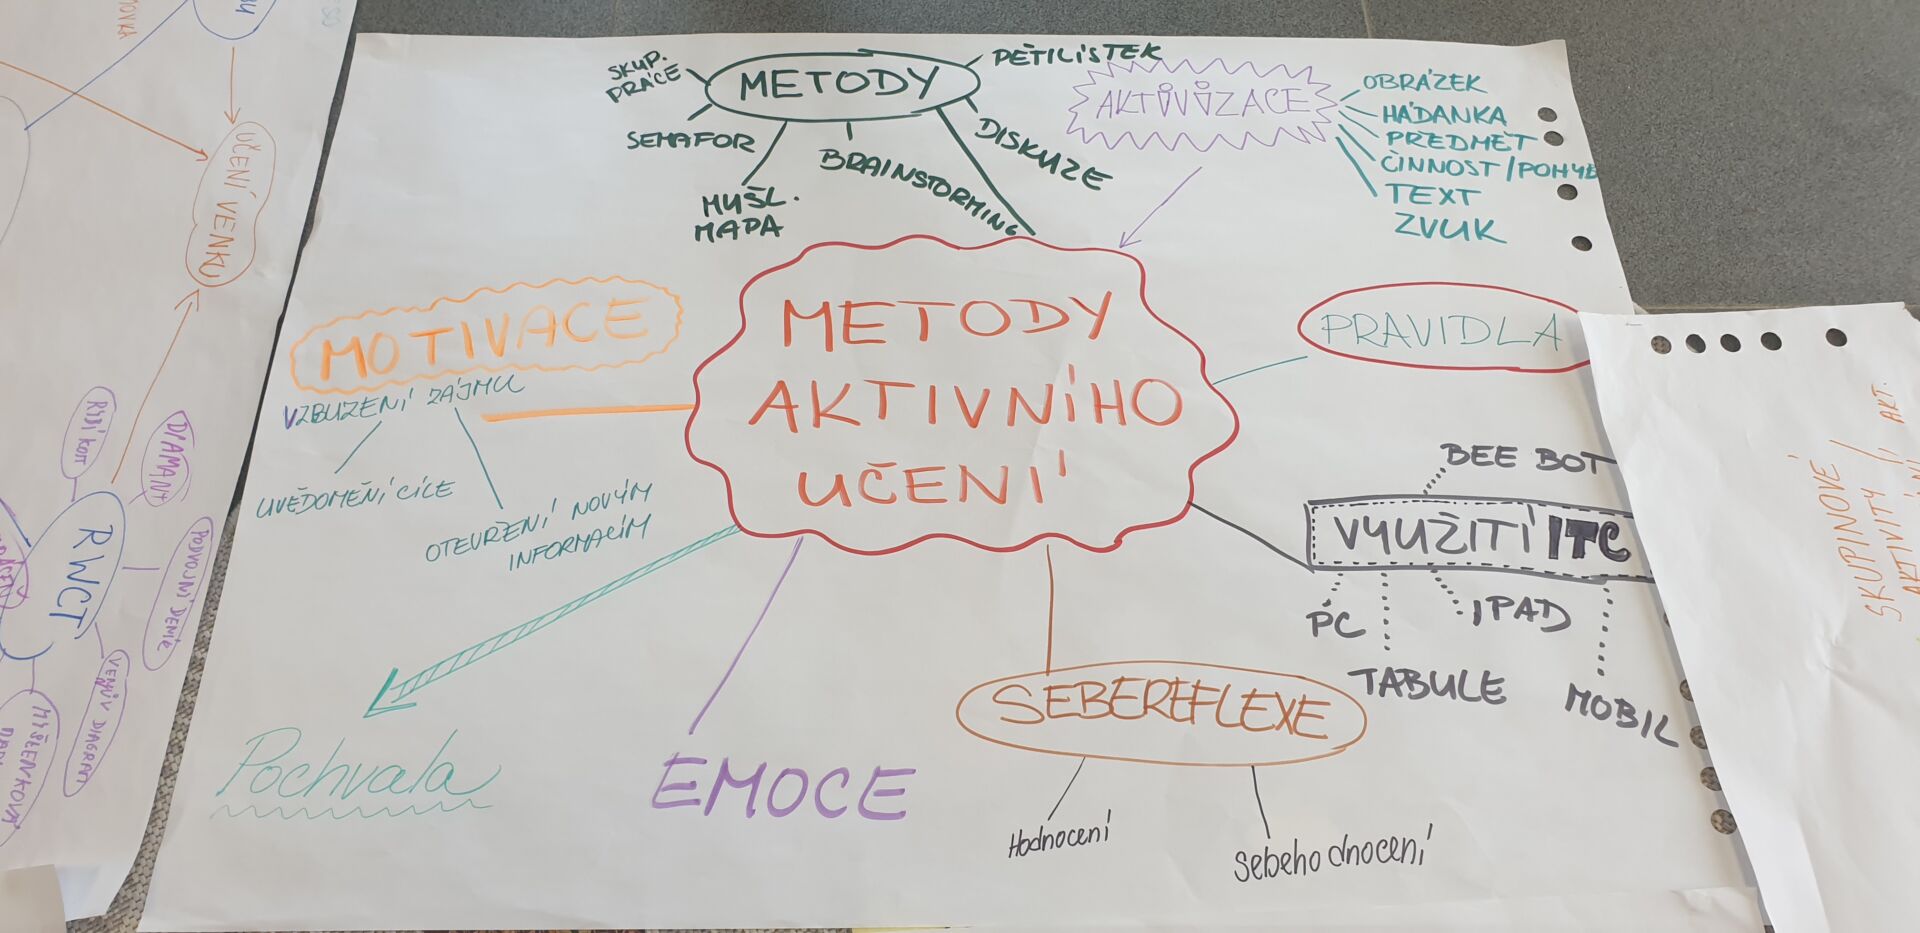 SKUP.
PRÁCE
METODY
PĚTILÍSTEK
SEMAFOR
MYŠL.
MAPA
BRAINSTORMING
DISKUZE
AKTIVIZACE
OBRÁZEK
HÁDANKA
PŘEDMĚT
ČINNOST/POHYB
TEXT
ZVUK
METODY
AKTIVNÍHO
UČENÍ
MOTIVACE
VZBUZENÍ ZÁJMU
UVĚDOMĚNÍ CÍLE
OTEVŘENÍ NOVÝM
INFORMACÍM
PRAVIDLA
BEE BOT
VYUŽITÍ ITC
PC
TABULE
IPAD
MOBIL
Pochvala
EMOCE
SEBEREFLEXE
Hodnocení
Sebehodnocení
UČENÍ VENKU
RYBÍ KOST
DIAMANT
RWCT
PODVOJNÝ DENÍK
VENNŮV DIAGRAM
MYŠLENKOVÁ
SKUPINOVÉ
AKTIVITY /
AKT.